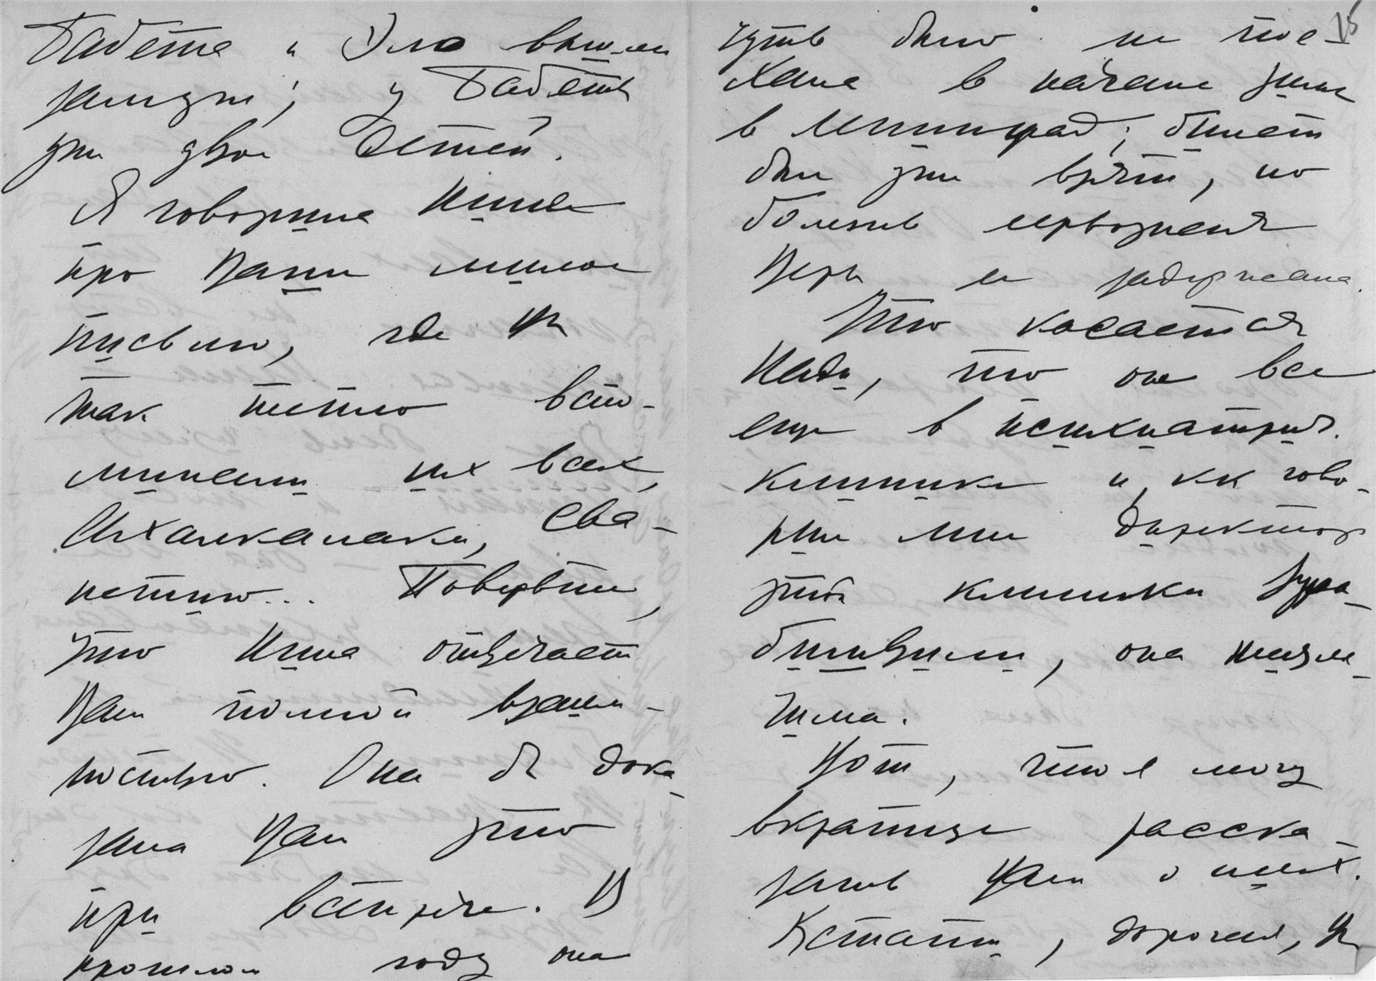 Бабета и Эло вышли
замуж; у Бабеты
уже двое детей.
Я говорила Нине
про Ваши милое
письмо, где Вы
так тепло вспо-
минаете их всех,
Ахалкалаки, Сва-
нетию... Поверьте,
что Нина отвечает
Вам полной взаим-
ностью. Она бы дока-
зала Вам это
при встрече. В
прошлом году она
15
чуть было не пое-
хала в начале зимы
в Ленинград; билет
был уже взят, но
болезнь
её задержала.
Что касается
Нади, то она все
еще в психиатрич.
клинике и, кк гово-
рил мне директор
этой клиники Зура-
бишвили, она неизле-
чима.
Вот, что я могу
вкратце расска-
зать Вам о них.
Кстати, дорогая, Вы